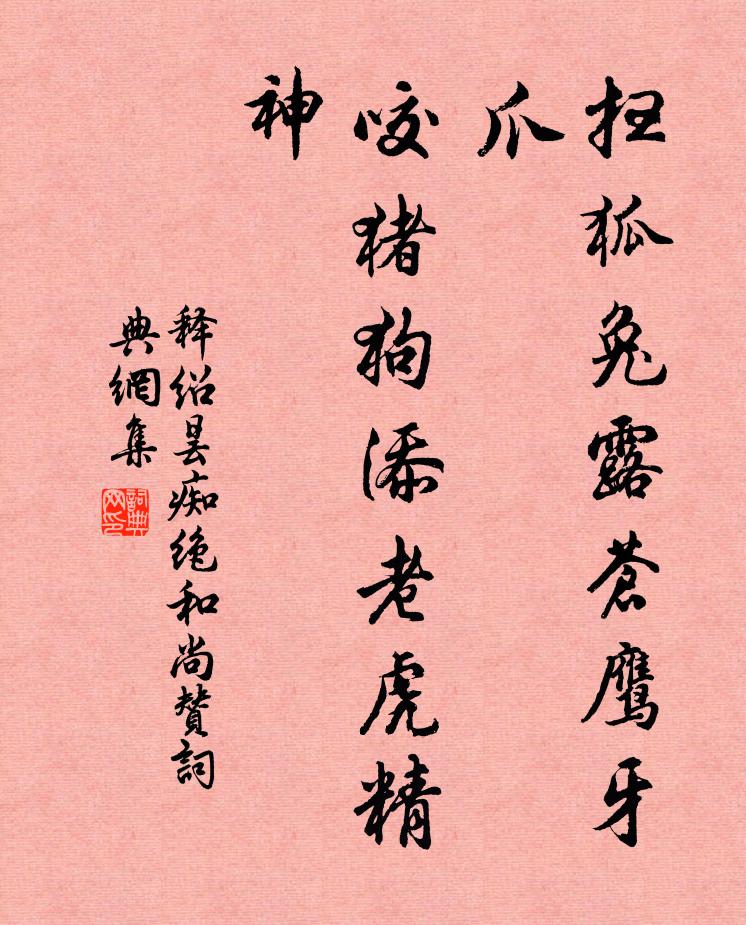 扭狐兔露蒼鹰牙
爪
咬猪狗添老虎精
神
释绍昙痴绝和尚赞詞
典網集
詞典网印